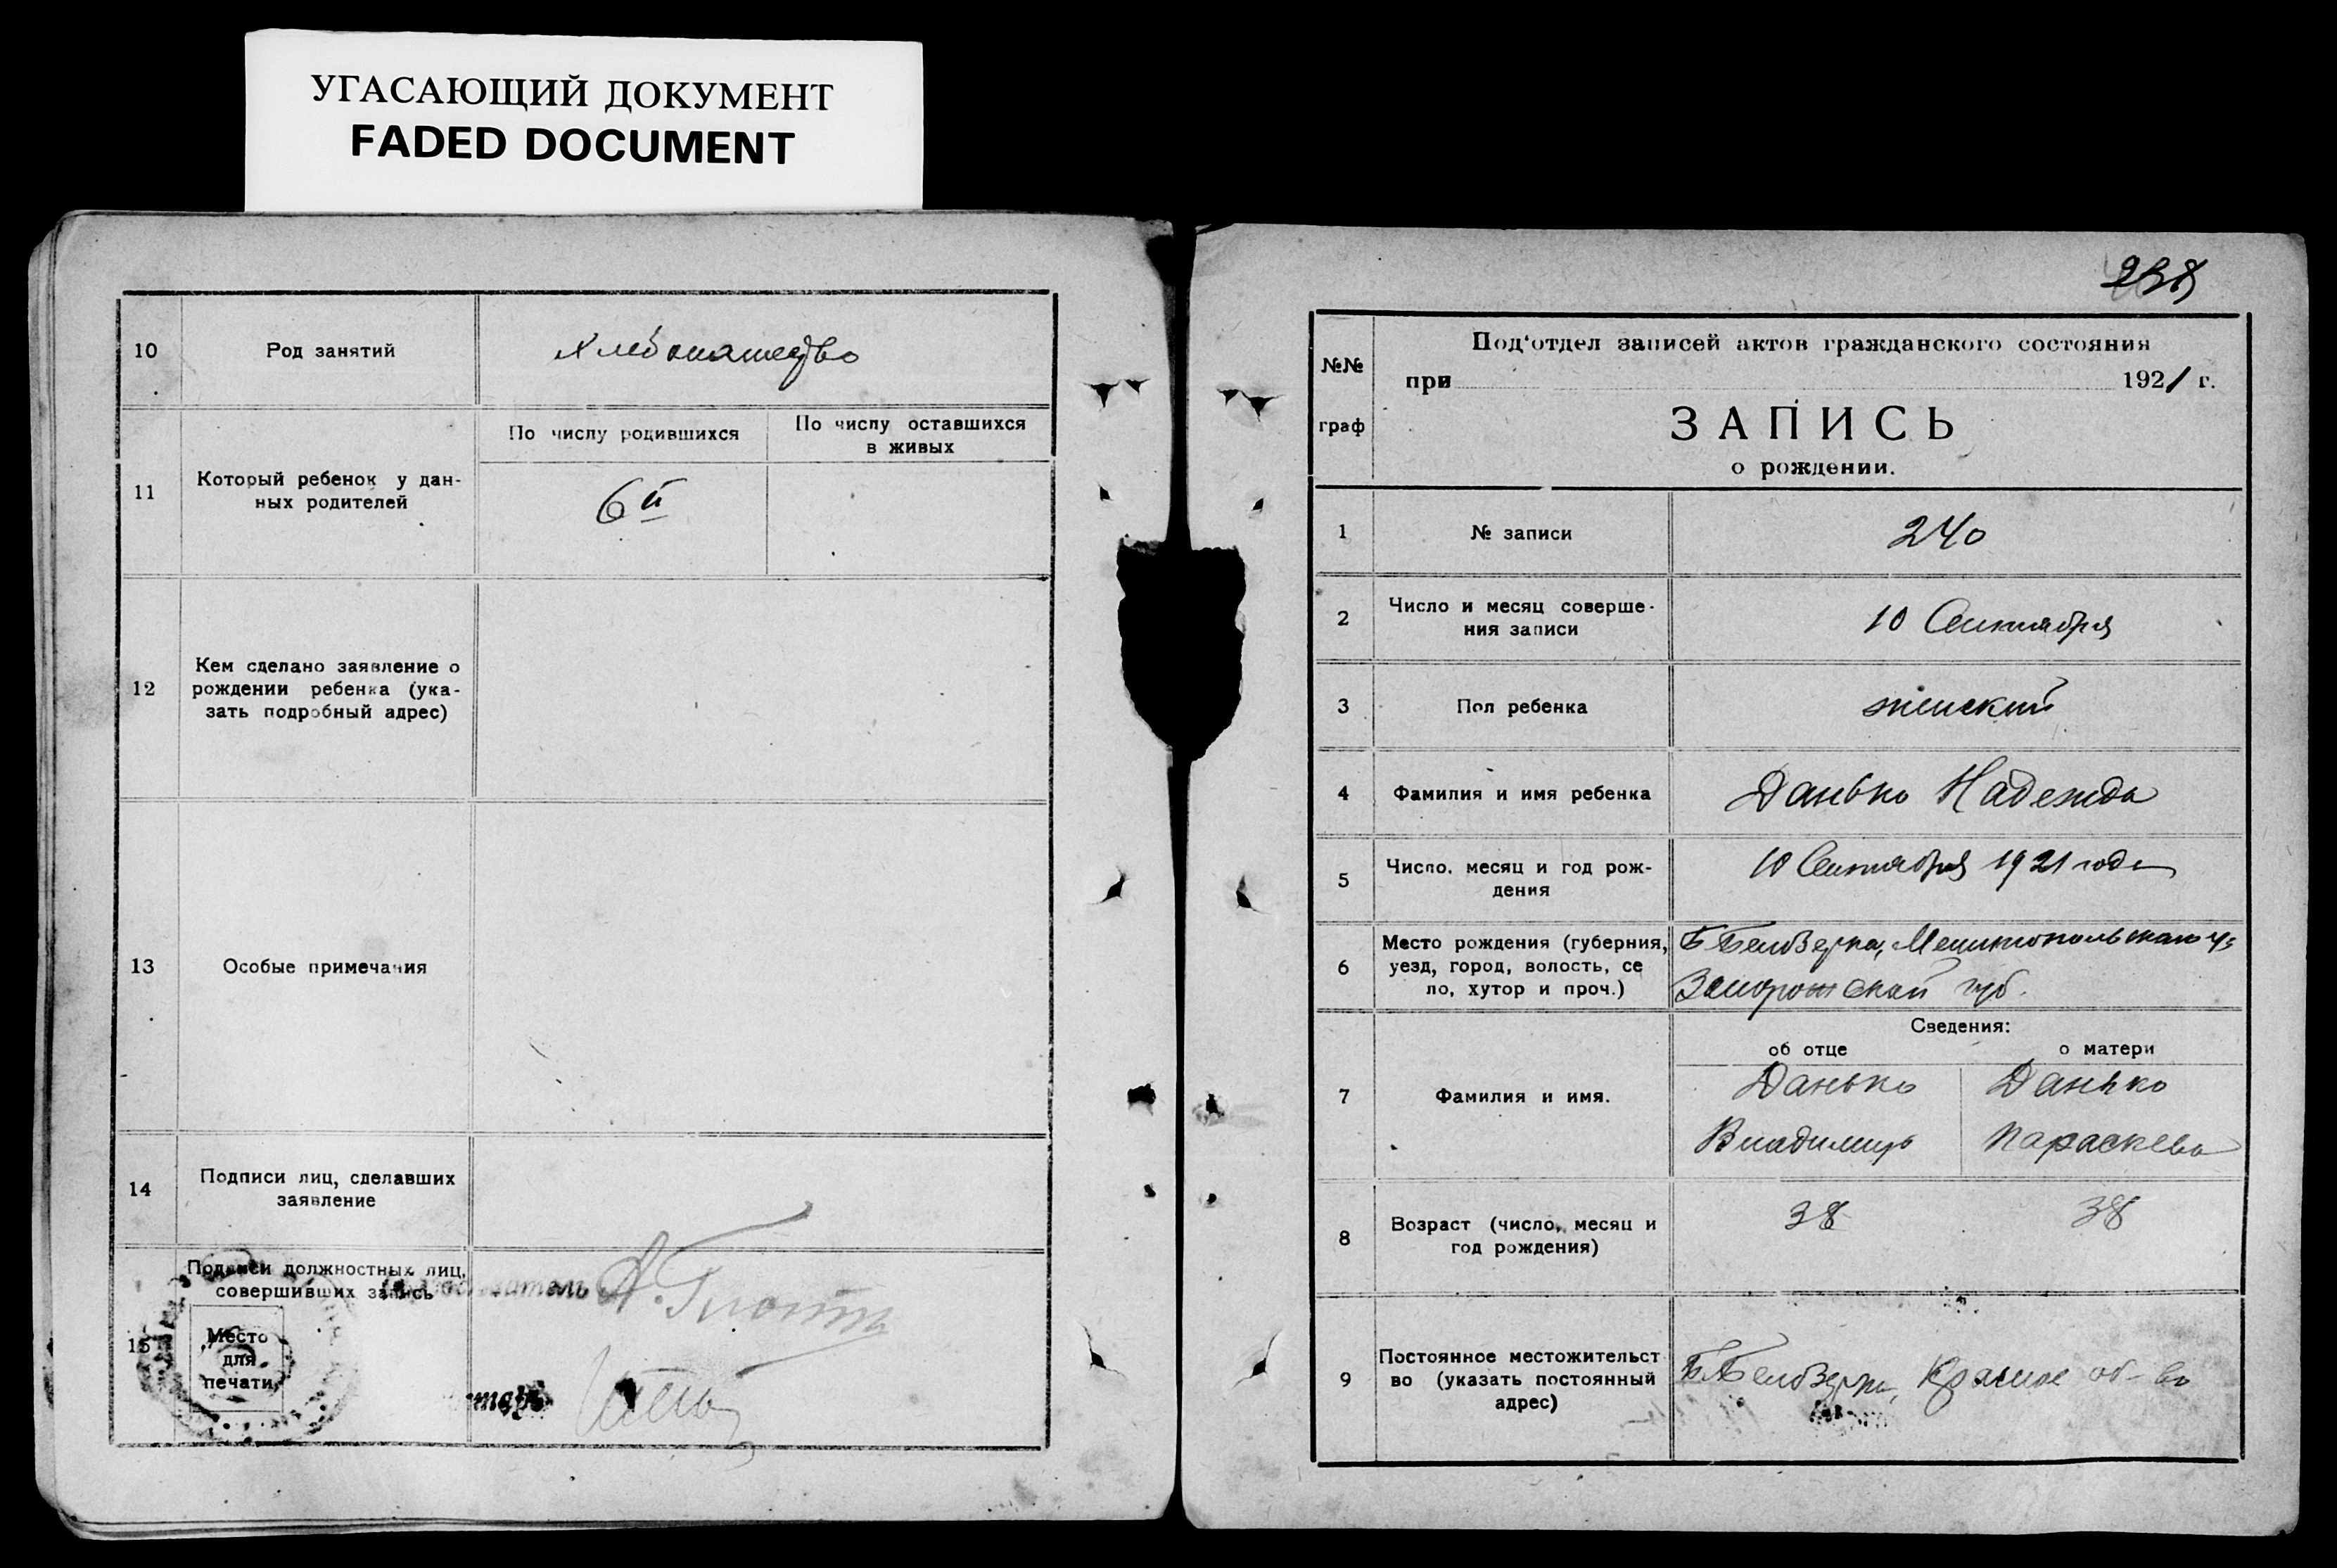 УГАСАЮЩИЙ ДОКУМЕНТ
FADED DOCUMENT
10
Род занятий
Хлебопашество
11
Который ребенок у дан-
ных родителей
По числу родившихся
По числу оставшихся
в живых
6й
12
Кем сделано заявление о
рождении ребенка (ука-
зать подробный адрес)
13
Особые примечания
14
Подписи лиц, сделавших
заявление
15
Подписи должностных лиц,
совершивших запись
Место
для
печати
238
№№
граф
Под'отдел записей актов гражданского состояния
при 1921 г.
ЗАПИСЬ
о рождении.
1
№ записи
240
2
Число и месяц соверше-
ния записи
10 Сентября
3
Пол ребенка
женский
4
Фамилия и имя ребенка
Данько Надежда
5
Число, месяц и год рож-
дения
10 Сентября 1921 года
6
Место рождения (губерния,
уезд, город, волость, се
ло, хутор и проч.)
Б Белозерка, Мелитопольского у.
Запорожской губ.
Сведения:
об отце
о матери
7
Фамилия и имя.
Данько
Владимир
Данько
Параскева
8
Возраст (число, месяц и
год рождения)
38
38
9
Постоянное местожительст
во (указать постоянный
адрес)
Б.Белозерка, Красное об-во